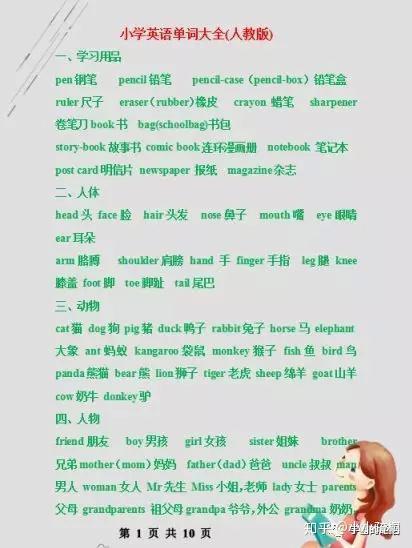 小学英语单词大全(人教版)
一、学习用品
pen钢笔 pencil铅笔 pencil-case（pencil-box）铅笔盒
ruler尺子 eraser（rubber）橡皮 crayon 蜡笔 sharpener
卷笔刀 book书 bag(schoolbag)书包
story-book故事书 comic book连环漫画册 notebook 笔记本
post card明信片 newspaper 报纸 magazine杂志
二、人体
head 头 face 脸 hair头发 nose鼻子 mouth嘴 eye眼睛
ear耳朵
arm 胳膊 shoulder肩膀 hand 手 finger手指 leg腿 knee
膝盖 foot脚 toe脚趾 tail尾巴
三、动物
cat猫 dog狗 pig猪 duck鸭子 rabbit兔子 horse马 elephant
大象 ant蚂蚁 kangaroo袋鼠 monkey猴子 fish鱼 bird鸟
panda熊猫 bear熊 lion狮子 tiger老虎 sheep绵羊 goat山羊
cow奶牛 donkey驴
四、人物
friend朋友 boy男孩 girl女孩 sister姐妹 brother
兄弟 mother(mom)妈妈 father(dad)爸爸 uncle叔叔 man
男人 woman女人 Mr先生 Miss小姐,老师 lady女士 parents
父母 grandparents 祖父母 grandpa爷爷,外公 grandma奶奶,
第 1 页 共 10 页
知乎